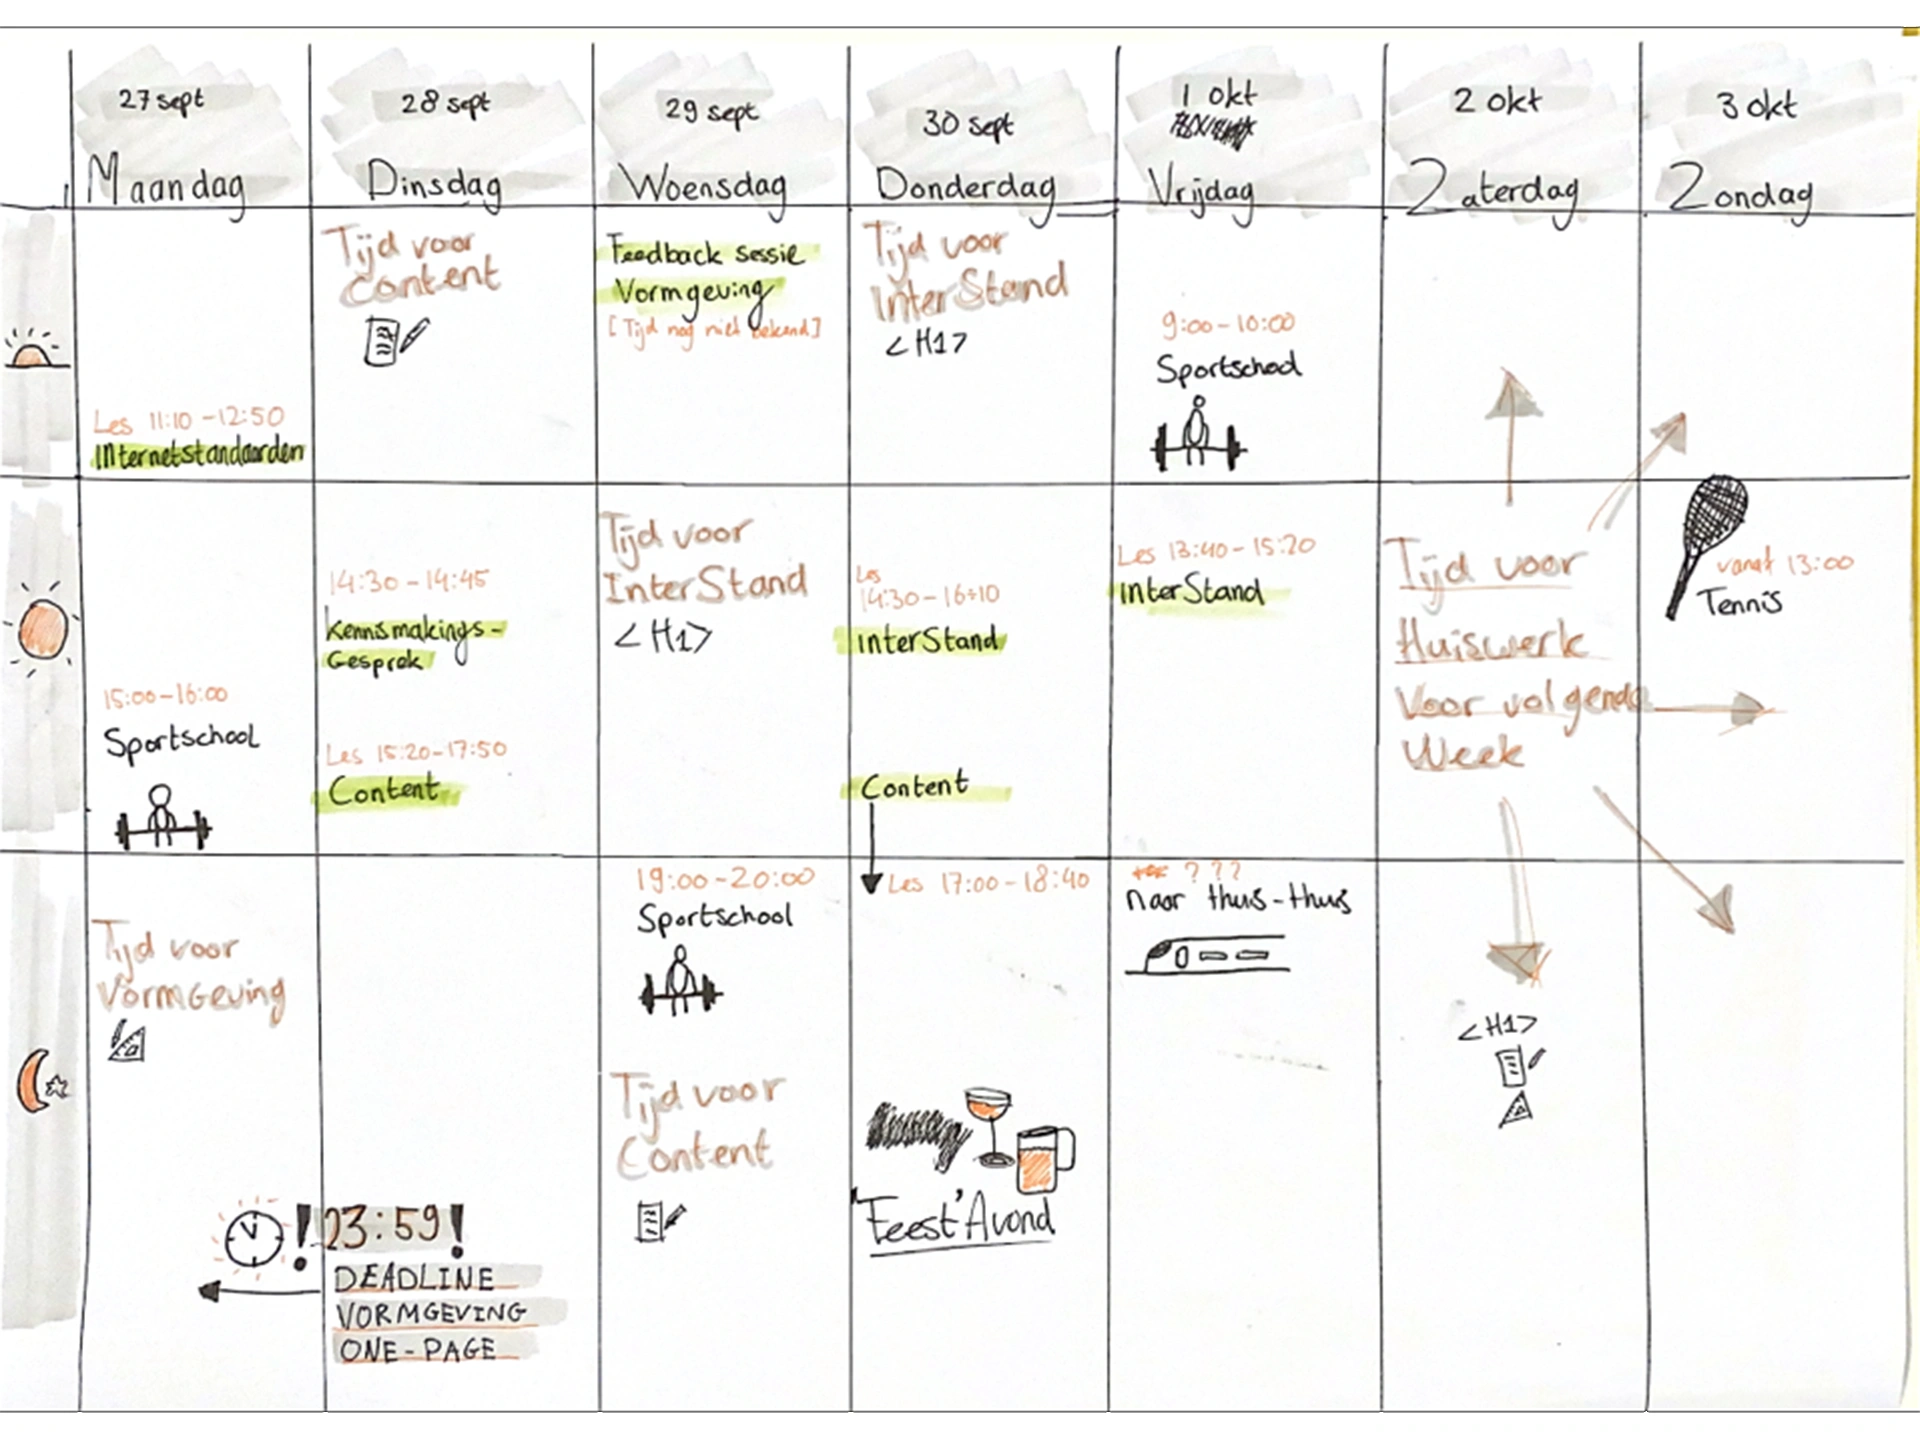 27 sept
Maandag
28 sept
Dinsdag
29 sept
Woensdag
30 sept
Donderdag
1 okt
Vrijdag
2 okt
Zaterdag
3 okt
Zondag
Les 11:10 - 12:50
Internetstandaarden
Tijd voor
Content
Feedback sessie
Vormgeving
[Tijd nog niet bekend]
Tijd voor
InterStand
<H1>
9:00-10:00
Sportschool
15:00-16:00
Sportschool
14:30 - 14:45
Kennismakings-
Gesprek
Les 15:20-17:50
Content
Tijd voor
InterStand
<H1>
Les
14:30-16:10
InterStand
Content
Les 13:40-15:20
InterStand
Tijd voor
Huiswerk
Voor volgende
Week
vanaf 13:00
Tennis
Tijd voor
Vormgeving
!23:59!
DEADLINE
VORMGEVING
ONE-PAGE
19:00-20:00
Sportschool
Tijd voor
Content
Les 17:00-18:40
'Feest' Avond
???
naar thuis-thuis
<H1>